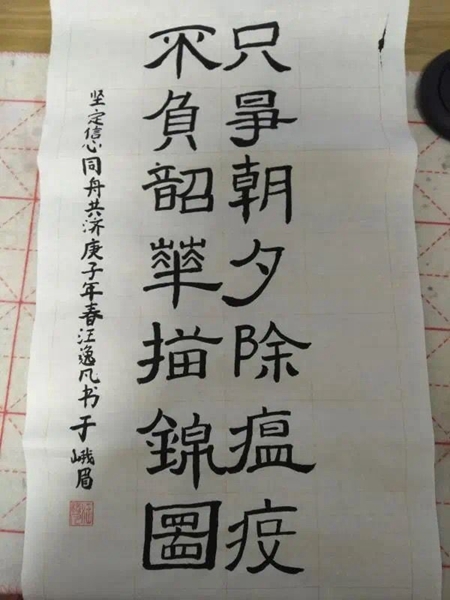 只爭朝夕除瘟疫
不負韶華描錦圖
坚定信心同舟共济庚子年春汪逸凡书于峨眉